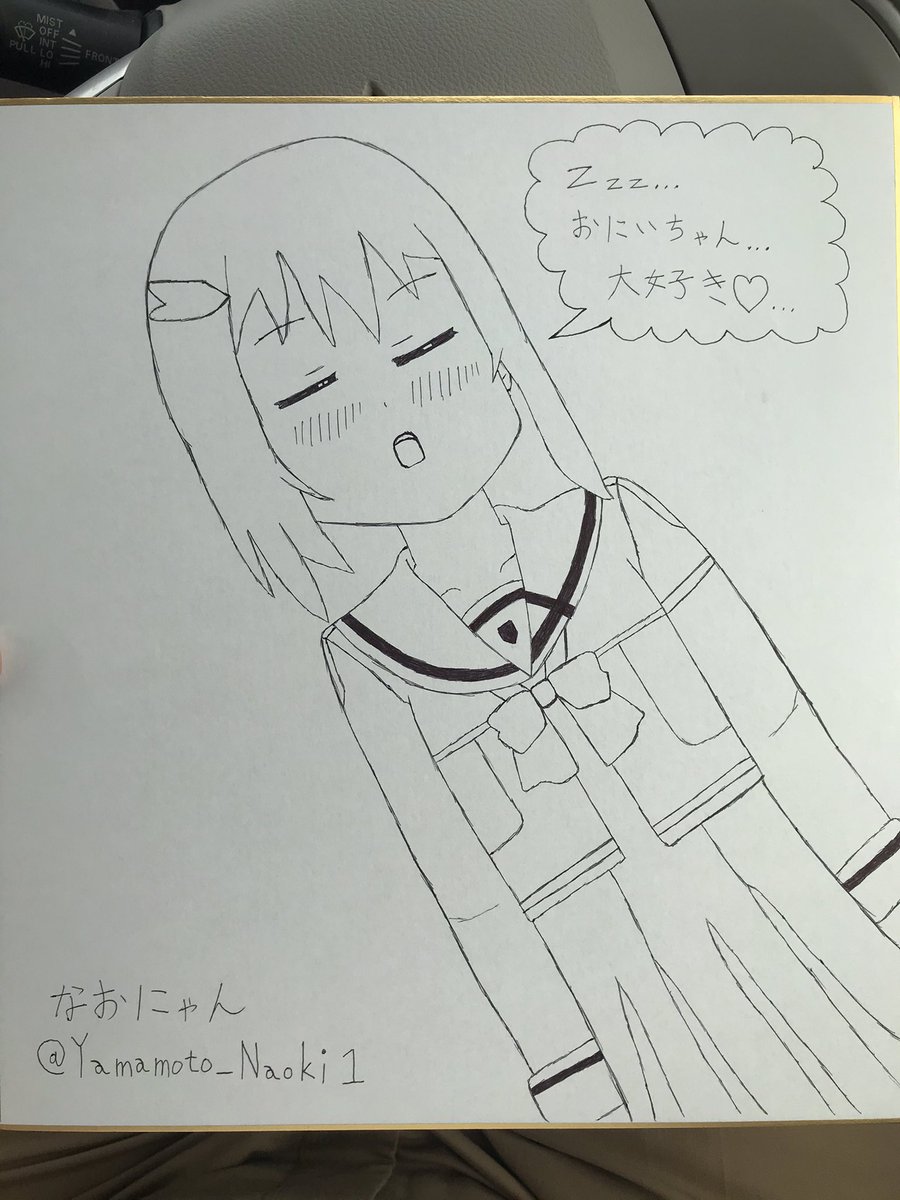 MIST
OFF
INT
LO
HI
PULL
FRONT
Zzz...
おにいちゃん...
大好き♡...
なおにゃん
@Yamamoto_Naoki1